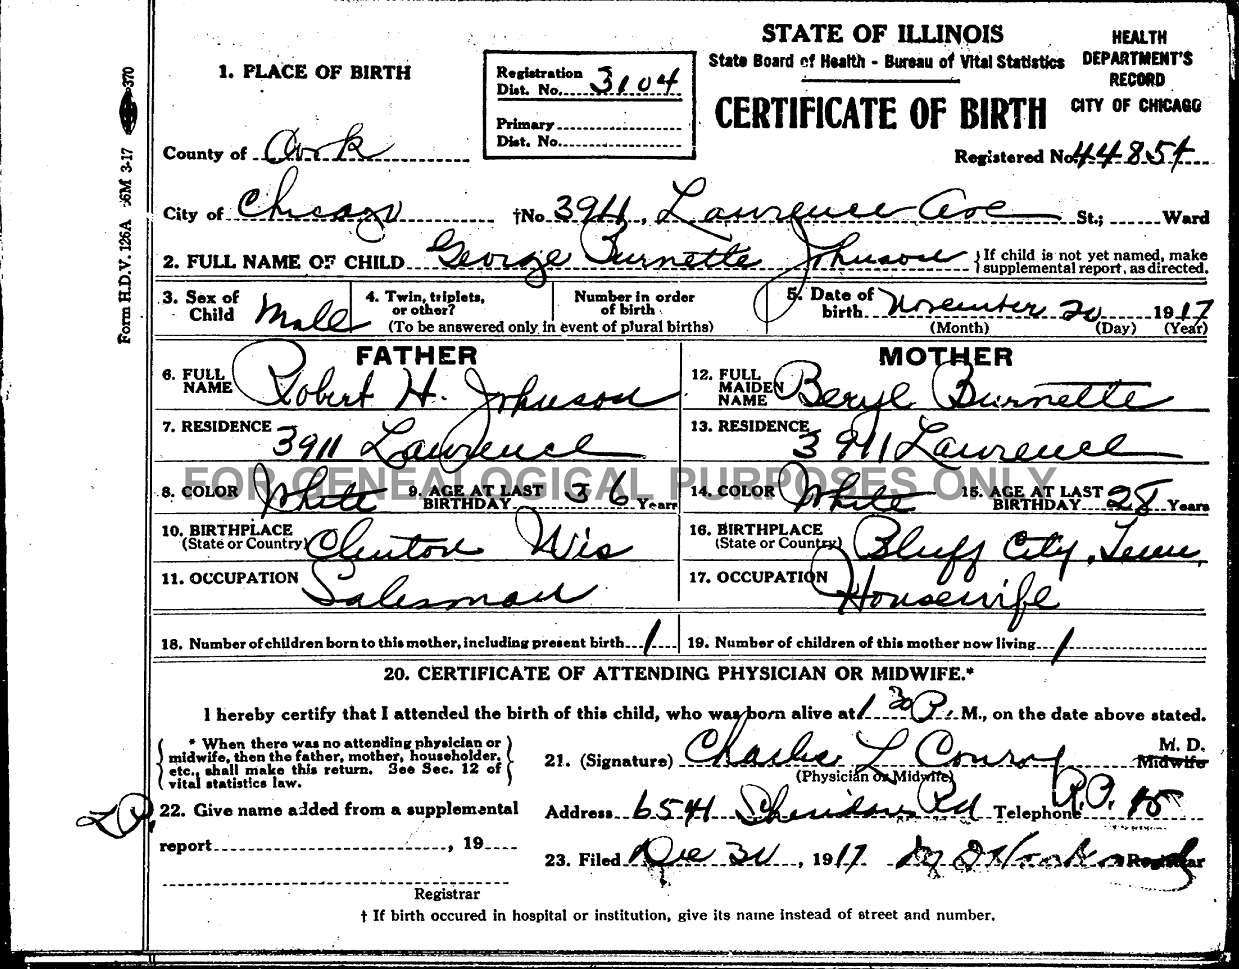 STATE OF ILLINOIS
State Board of Health - Bureau of Vital Statistics
CERTIFICATE OF BIRTH
HEALTH
DEPARTMENT'S
RECORD
CITY OF CHICAGO
Registered No. 44854
Form H.D.V. 126A 56M 3-17 370
1. PLACE OF BIRTH
Registration
Dist. No. 3104
Primary
Dist. No.
County of Cook
City of Chicago †No 3911, Lawrence Ave St.; Ward
2. FULL NAME OF CHILD George Burnette Johnson { If child is not yet named, make
supplemental report, as directed.
3. Sex of
Child Male
4. Twin, triplets,
or other?
Number in order
of birth
(To be answered only in event of plural births)
5. Date of
birth November 20 1917
(Month) (Day) (Year)
FATHER
6. FULL
NAME Robert H. Johnson
7. RESIDENCE 3911 Lawrence
8. COLOR White 9. AGE AT LAST
BIRTHDAY 36 Years
10. BIRTHPLACE
(State or Country) Clinton Wis
11. OCCUPATION Salesman
MOTHER
12. FULL
MAIDEN
NAME Beryl Burnette
13. RESIDENCE 3911 Lawrence
14. COLOR White 15. AGE AT LAST
BIRTHDAY 28 Years
16. BIRTHPLACE
(State or Country) Bluff City, Tenn,
17. OCCUPATION Housewife
FOR GENEALOGICAL PURPOSES ONLY
18. Number of children born to this mother, including present birth 1
19. Number of children of this mother now living 1
20. CERTIFICATE OF ATTENDING PHYSICIAN OR MIDWIFE.*
I hereby certify that I attended the birth of this child, who was born alive at 1 30 P. M., on the date above stated.
* When there was no attending physician or
midwife, then the father, mother, householder,
etc., shall make this return. See Sec. 12 of
vital statistics law.
21. (Signature) Charles L Conroy M. D.
Midwife
(Physician or Midwife)
Address 6541 Sheridan Rd Telephone R.P. 15
22. Give name added from a supplemental
report , 19
Registrar
23. Filed Dec 30, 1917 Registrar
† If birth occured in hospital or institution, give its name instead of street and number.